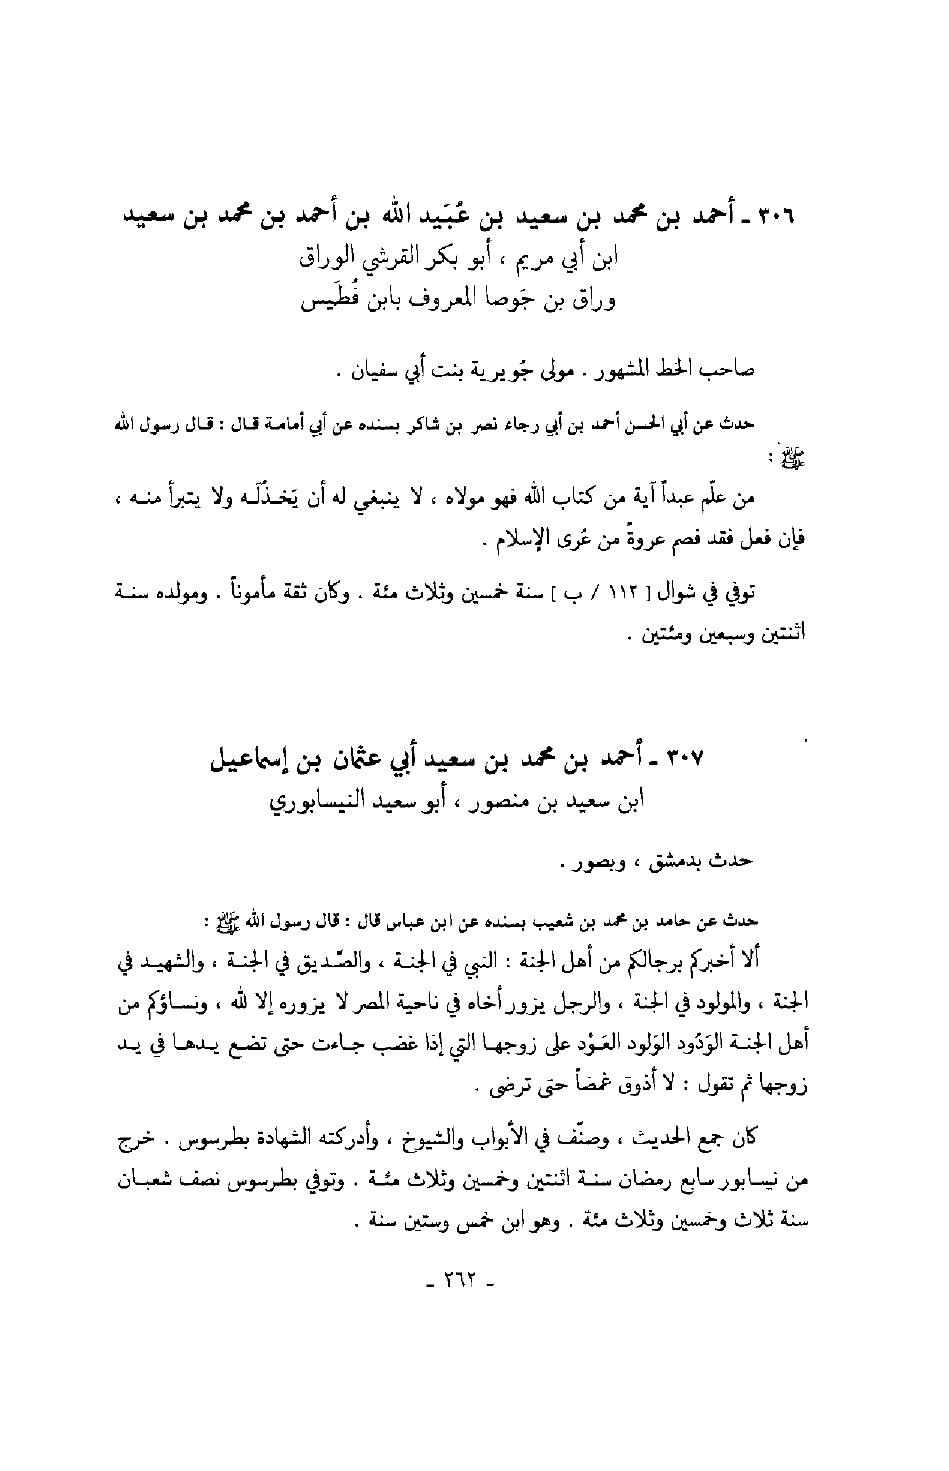 ٣٠٦ - أحمد بن محمد بن سعيد بن عُبَيد الله بن أحمد بن محمد بن سعيد
ابن أبي مريم ، أبو بكر القرشي الوراق
وراق بن جَوصا المعروف بابن فُطَيس
صاحب الخط المشهور . مولى جُويرية بنت أبي سفيان .
حدث عن أبي الحسن أحمد بن أبي رجاء نصر بن شاكر بسنده عن أبي أمامة قال : قال رسول الله
ﷺ :
من علّم عبداً آية من كتاب الله فهو مولاه ، لا ينبغي له أن يَخذُلَه ولا يتبرأ منه ،
فإن فعل فقد فصم عروةً من عُرى الإسلام .
توفي في شوال [ ١١٢ / ب ] سنة خمسين وثلاث مئة . وكان ثقة مأموناً . ومولده سنة
اثنتين وسبعين ومئتين .
٣٠٧ - أحمد بن محمد بن سعيد أبي عثمان بن إسماعيل
ابن سعيد بن منصور ، أبو سعيد النيسابوري
حدث بدمشق ، وبصور .
حدث عن حامد بن محمد بن شعيب بسنده عن ابن عباس قال : قال رسول الله ﷺ :
ألا أخبركم برجالكم من أهل الجنة : النبي في الجنة ، والصّديق في الجنة ، والشهيد في
الجنة ، والمولود في الجنة ، والرجل يزور أخاه في ناحية المصر لا يزوره إلا لله ، ونساؤكم من
أهل الجنة الوَدُود الوَلود العَؤد على زوجها التي إذا غضب جاءت حتى تضع يدها في يد
زوجها ثم تقول : لا أذوق غَمضاً حتى ترضى .
كان جمع الحديث ، وصنّف في الأبواب والشيوخ ، وأدركته الشهادة بطرسوس . خرج
من نيسابور سابع رمضان سنة اثنتين وخمسين وثلاث مئة . وتوفي بطرسوس نصف شعبان
سنة ثلاث وخمسين وثلاث مئة . وهو ابن خمس وستين سنة .
- ٢٦٢ -